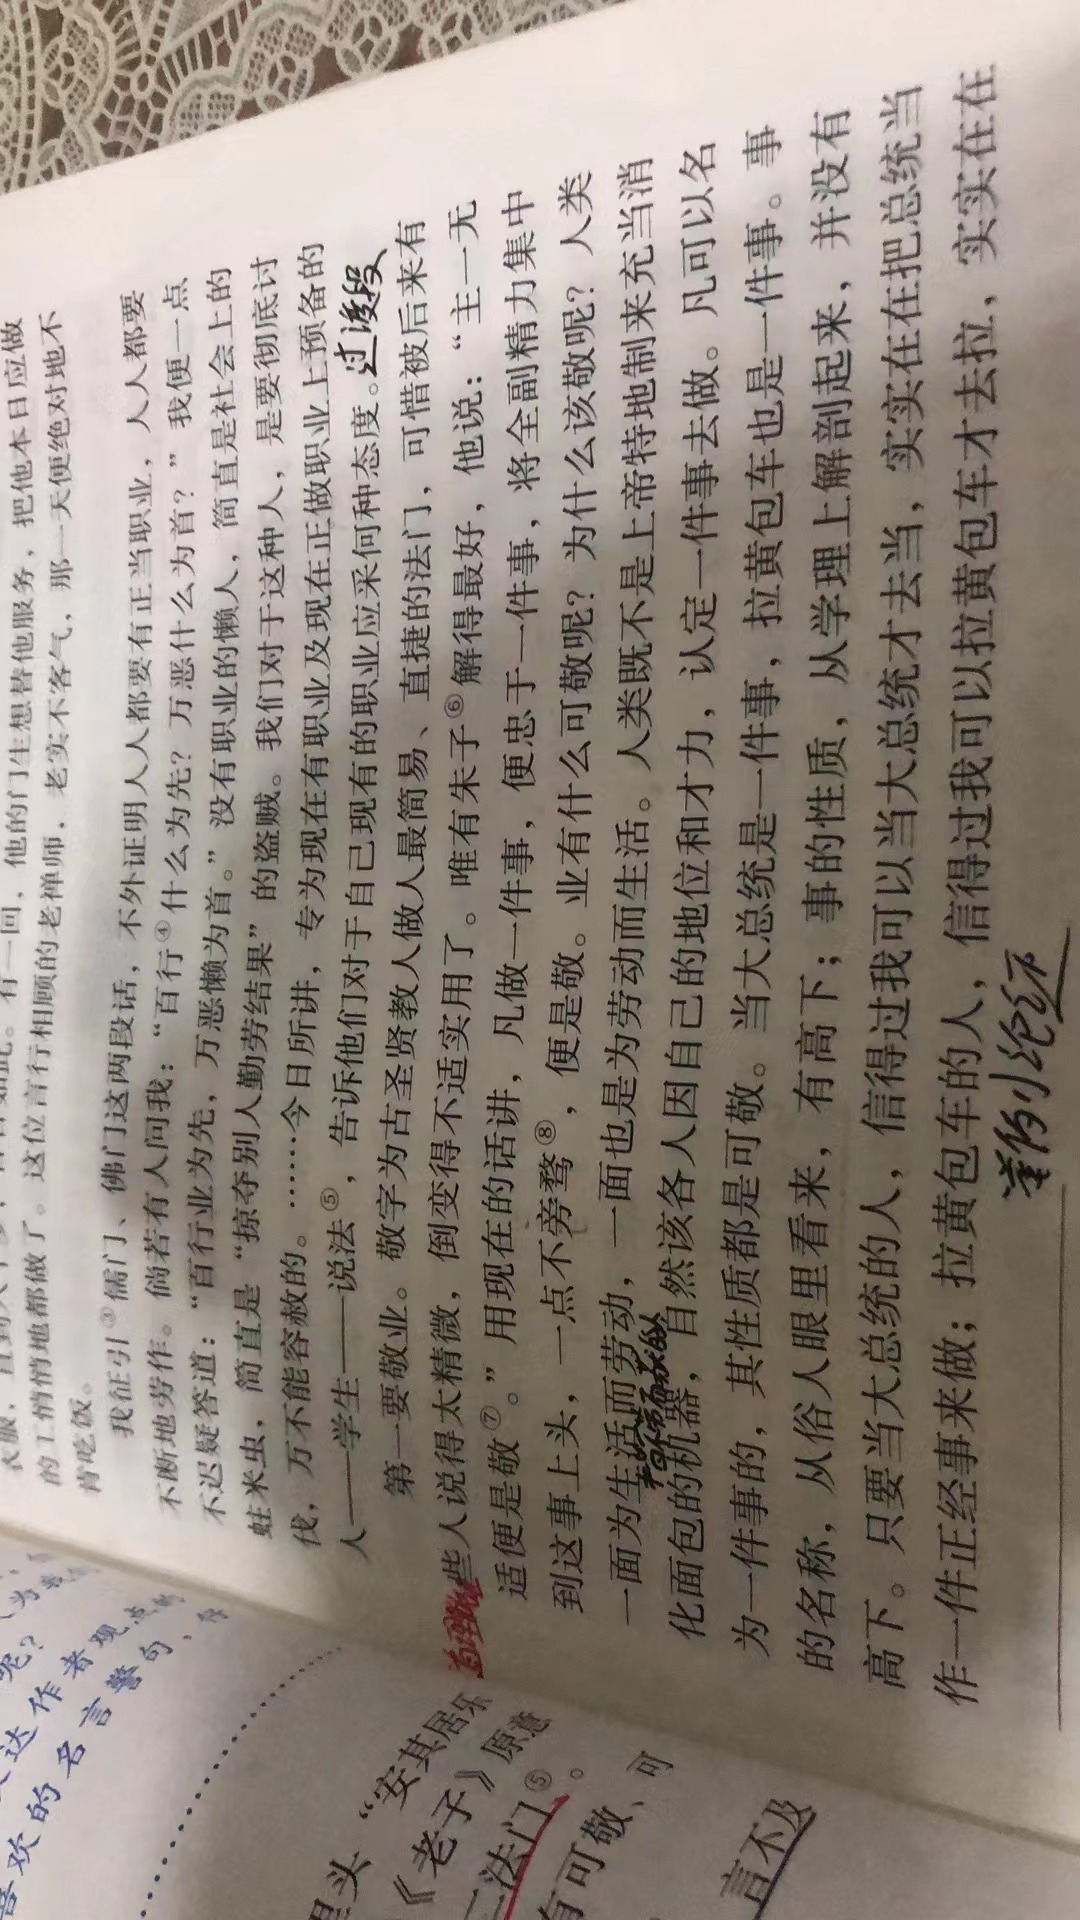 衣服，直到天
的工悄悄地都做了。这位言行相顾的老禅师，老实不客气，那一天便绝对地不
肯吃饭。
我征引③儒门、佛门这两段话，不外证明人人都要有正当职业，人人都要
不断地劳作。倘若有人问我：“百行④什么为先？万恶什么为首？”我便一点
不迟疑答道：“百行业为先，万恶懒为首。”没有职业的懒人，简直是社会上的
蛀米虫，简直是“掠夺别人勤劳结果”的盗贼。我们对于这种人，是要彻底讨
伐，万不能容赦的。……今日所讲，专为现在有职业及现在正做职业上预备的
人——学生——说法⑤，告诉他们对于自己现有的职业应采何种态度。过渡段
第一要敬业。敬字为古圣贤教人做人最简易、直捷的法门，可惜被后来有
些人说得太精微，倒变得不适实用了。唯有朱子⑥解得最好，他说：“主一无
适便是敬⑦。”用现在的话讲，凡做一件事，便忠于一件事，将全副精力集中
到这事上头，一点不旁骛⑧，便是敬。业有什么可敬呢？为什么该敬呢？人类
一面为生活而劳动，一面也是为劳动而生活。人类既不是上帝特地制来充当消
化面包的机器，自然该各人因自己的地位和才力，认定一件事去做。凡可以名
为一件事的，其性质都是可敬。当大总统是一件事，拉黄包车也是一件事。事
的名称，从俗人眼里看来，有高下；事的性质，从学理上解剖起来，并没有
高下。只要当大总统的人，信得过我可以当大总统才去当，实实在在把总统当
作一件正经事来做；拉黄包车的人，信得过我可以拉黄包车才去拉，实实在在
举例论证
呢？
达作者观点的
喜欢的名言警句，
里头“安其居乐
《老子》原意
二法门⑤。
有可敬、可
言不及